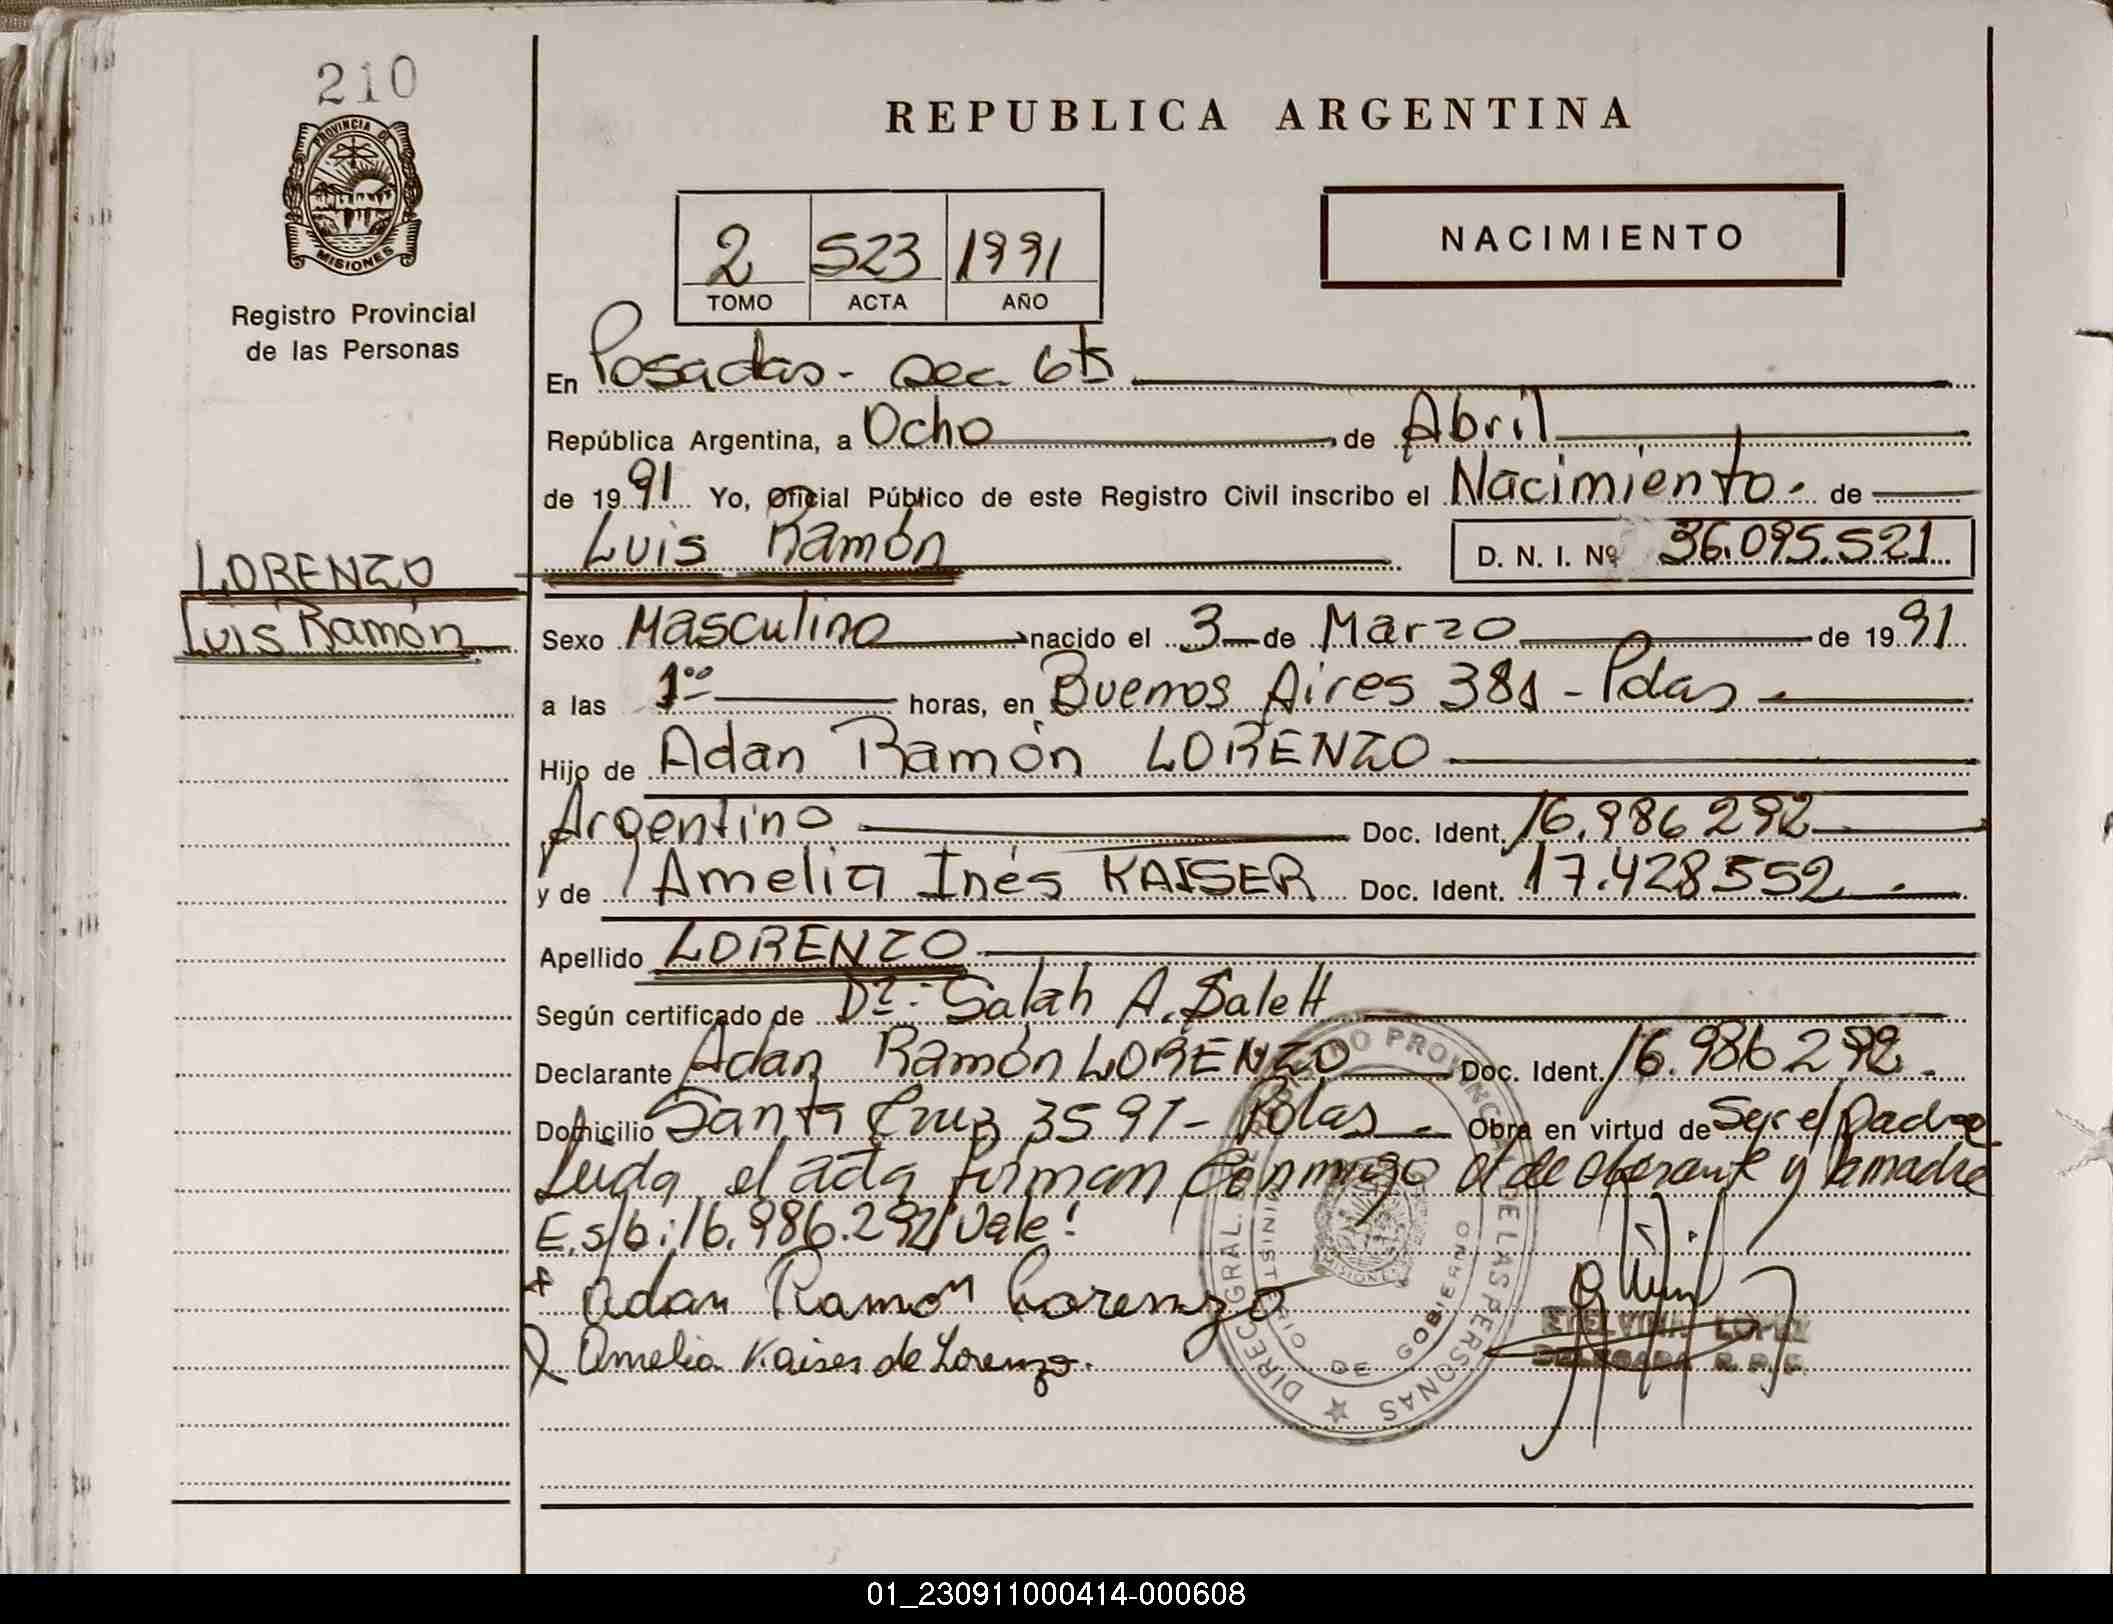 210
PROVINCIA DE
MISIONES
Registro Provincial
de las Personas
REPUBLICA ARGENTINA
2 523 1991
TOMO ACTA AÑO
NACIMIENTO
En Posadas - sec 6ta
República Argentina, a Ocho de Abril
de 1991 Yo, Oficial Público de este Registro Civil inscribo el Nacimiento. de
LORENZO
Luis Ramón
Luis Ramón D. N. I. Nº 36.095.521
Sexo Masculino nacido el 3 de Marzo de 1991
a las 1ºº horas, en Buenos Aires 381 - Pdas
Hijo de Adan Ramón LORENZO
Argentino Doc. Ident. 16.986 292
y de Amelia Inés KAISER Doc. Ident. 17.428552
Apellido LORENZO
Según certificado de Dr.: Salah A. Salett
Declarante Adan Ramón LORENZO Doc. Ident. 16.986 292.
Domicilio Santa Cruz 3597 - Pdas. Obra en virtud de Ser el padre
Leída el acta firman conmigo el declarante y la madre
E.s/b: 16.986.292/Vale!
Adan Ramon Lorenzo
Amelia Kaiser de Lorenzo.
DIREC. GRAL. REGISTRO PROVINCIAL DE LAS PERSONAS
MINISTERIO DE GOBIERNO
MISIONES
ETELVINA LOPEZ
DELEGADA R.P.P.
01_230911000414-000608